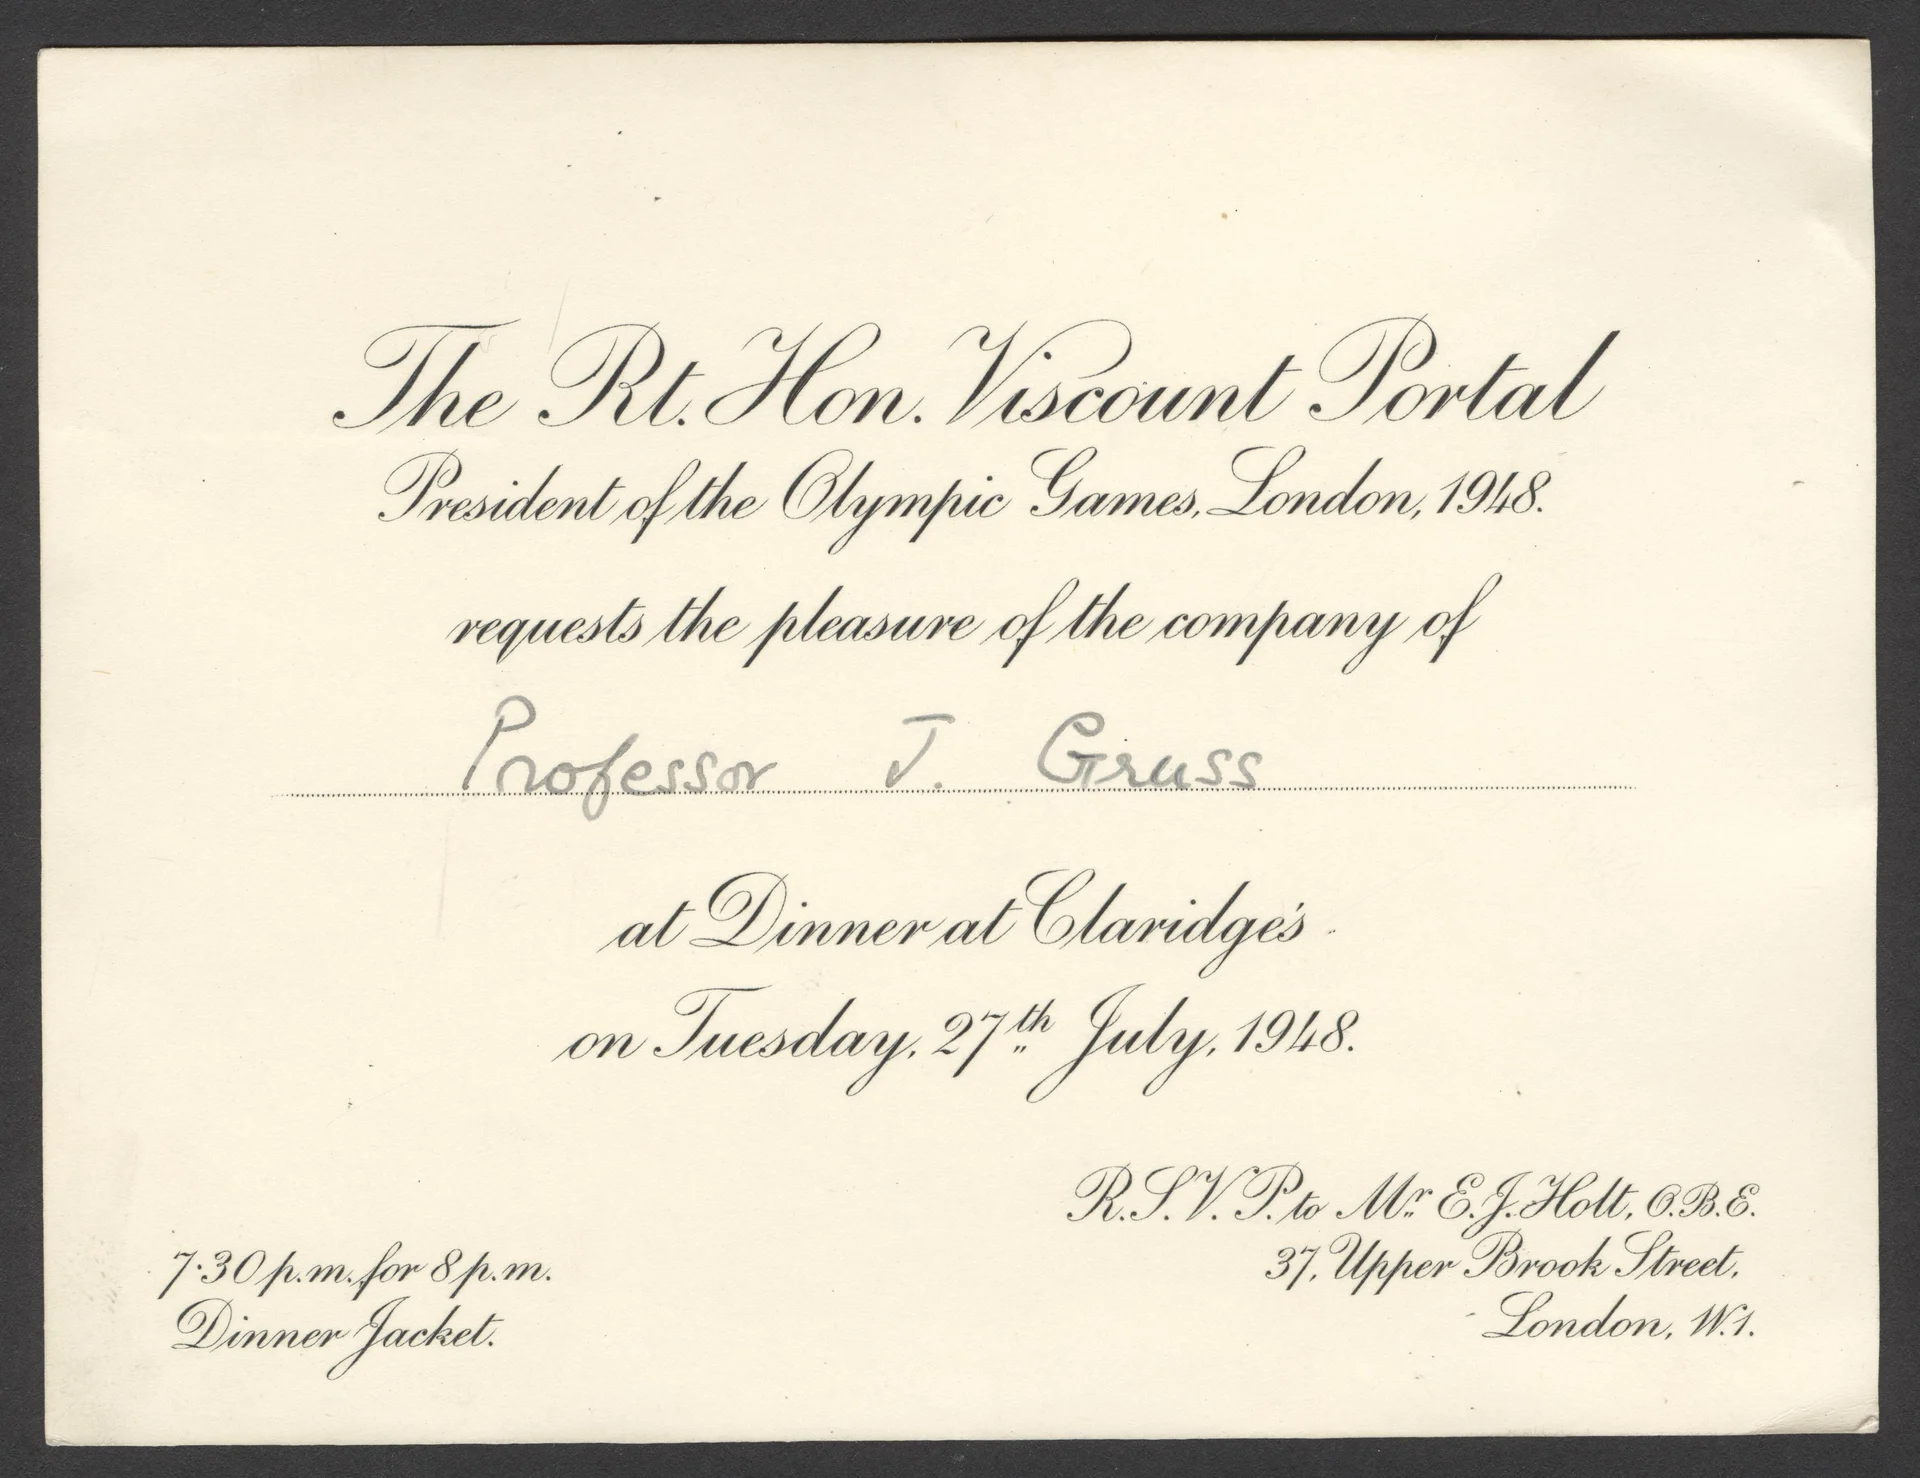 The Rt. Hon. Viscount Portal
President of the Olympic Games, London, 1948.
requests the pleasure of the company of
Professor J. Gruss
at Dinner at Claridge's
on Tuesday, 27th July, 1948.
R.S.V.P. to Mr. E.J. Holt, O.B.E.
37, Upper Brook Street,
London, W.1.
7·30 p.m. for 8 p.m.
Dinner Jacket.